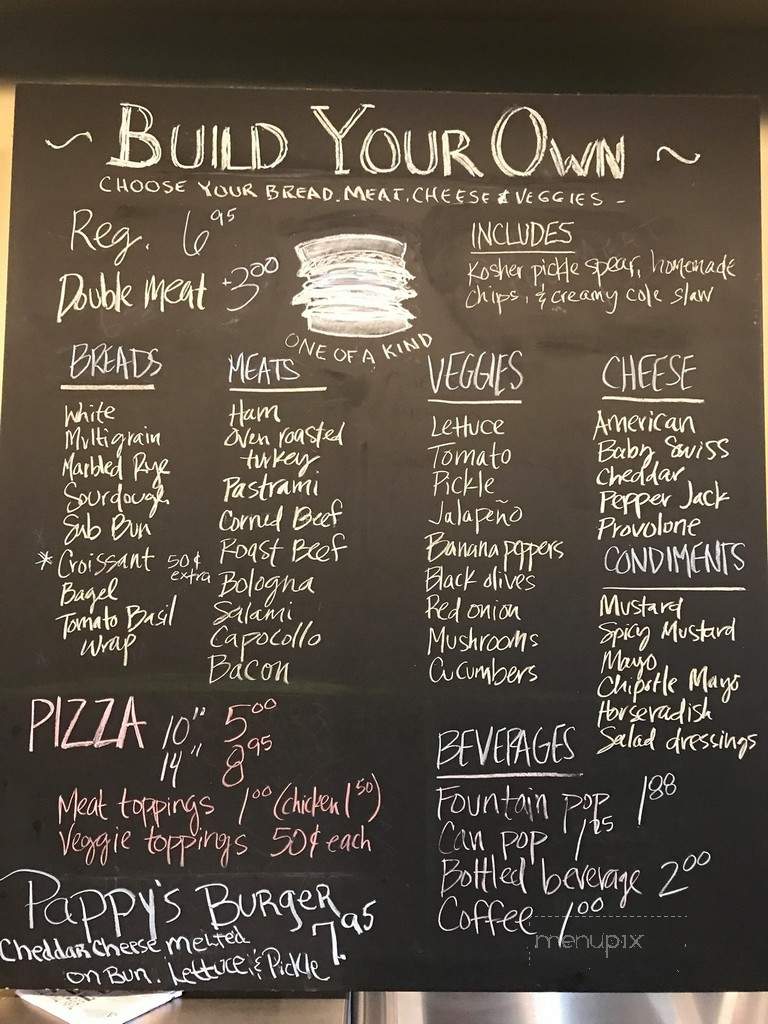 ~ BUILD YOUR OWN ~
CHOOSE YOUR BREAD, MEAT, CHEESE & VEGGIES -
Reg. 6 95
Double Meat +3 00
ONE OF A KIND
INCLUDES
Kosher pickle spear, homemade
chips, & creamy cole slaw
BREADS
White
Multigrain
Marbled Rye
Sourdough
Sub Bun
* Croissant 50¢ extra
Bagel
Tomato Basil
Wrap
MEATS
Ham
Oven roasted
turkey
Pastrami
Corned Beef
Roast Beef
Bologna
Salami
Capocollo
Bacon
VEGGIES
Lettuce
Tomato
Pickle
Jalapeño
Banana peppers
Black olives
Red onion
Mushrooms
Cucumbers
CHEESE
American
Baby Swiss
Cheddar
Pepper Jack
Provolone
CONDIMENTS
Mustard
Spicy Mustard
Mayo
Chipotle Mayo
Horseradish
Salad dressings
PIZZA 10" 5 00
14" 8 95
Meat toppings 1 00 (chicken 1 50)
Veggie toppings 50¢ each
BEVERAGES
Fountain pop 1 88
Can pop 1 25
Bottled beverage 2 00
Coffee 1 00
PAPPY'S BURGER 7.95
Cheddar cheese melted
on Bun. Lettuce & Pickle
menupix